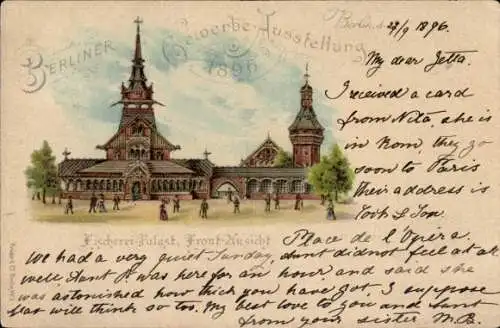 Berliner Gewerbe-Ausstellung
1896
Berlin, d. 27/9 1896.
My dear Jetta.
I received a card
from Nita, she is
in Rom, they go
soon to Paris
their address is
Place de l'Opéra.
Fischerei-Palast, Front-Ansicht
We had a very quiet Sunday, Aunt did not feel at all
well. Aunt P. was here for an hour and said she
was astonished how thick you have got, I suppose
will think so too. My best love to you and Aunt
from your sister M.B.